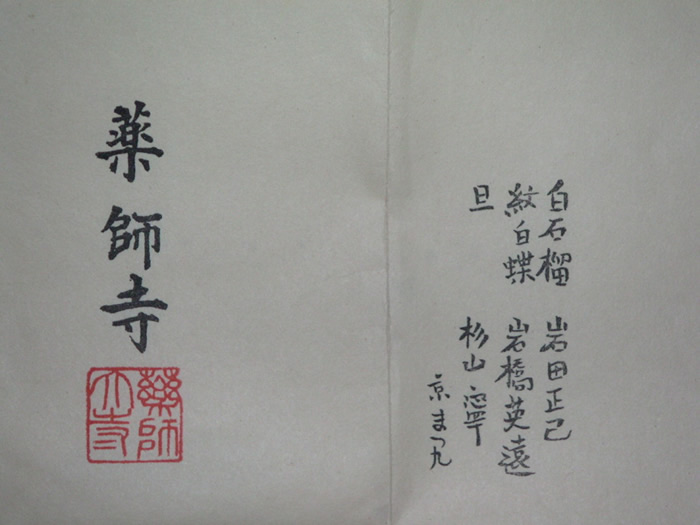 白石榴 岩田正己
紋白蝶 岩橋英遠
旦 杉山寧
京まつ九
薬師寺
藥師